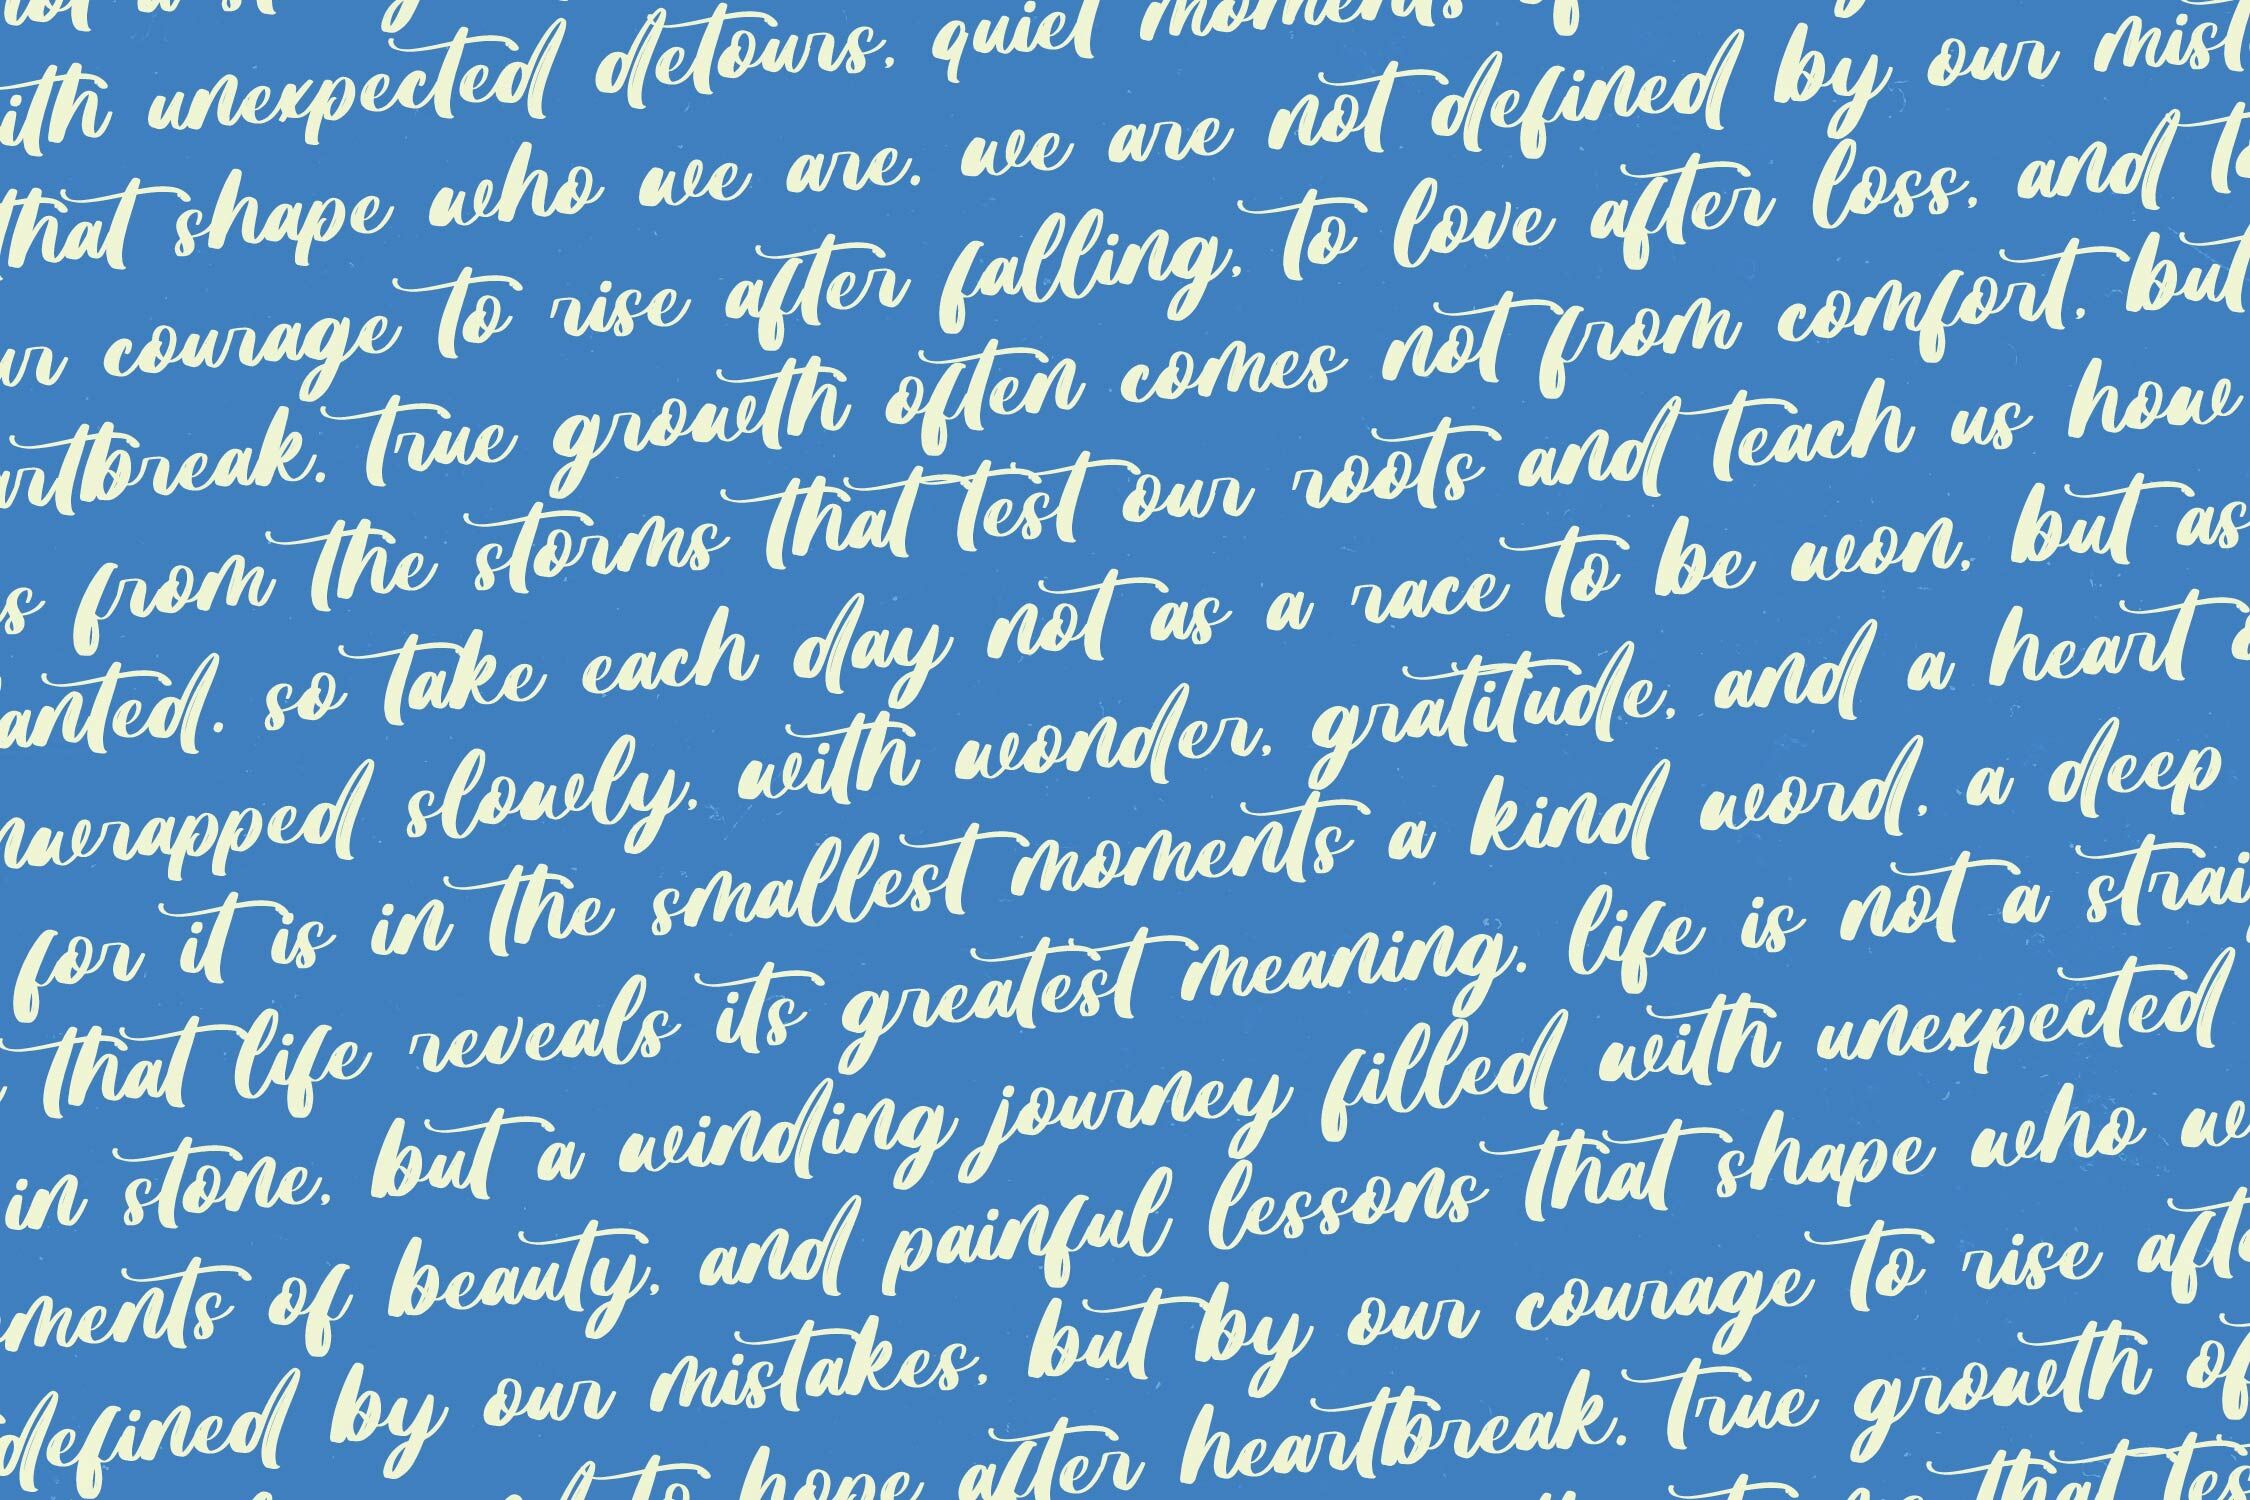 unexpected detours, quiet moments
that shape who we are. we are not defined by our
courage to rise after falling, to love after loss, and
true growth often comes not from comfort, but
from the storms that test our roots and teach us how
so take each day not as a race to be won, but as
slowly, with wonder, gratitude, and a heart
for it is in the smallest moments a kind word, a deep
that life reveals its greatest meaning. life is not a
in stone, but a winding journey filled with unexpected
of beauty, and painful lessons that shape who
defined by our mistakes, but by our courage to rise
to hope after heartbreak. true growth
that